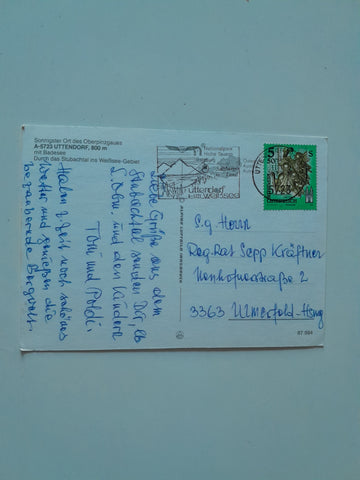 Sonnigster Ort des Oberpinzgaues
A-5723 UTTENDORF, 800 m
mit Badesee
Durch das Stubachtal ins Weißsee-Gebiet
Nationalpark
Hohe Tauern
uttendorf
weißsee
5
S
Liebe Grüße aus dem
Stubachtal senden Dir, lb
und den Kindern
Toni und Poldi.
Haben z. Zeit noch schönes
Wetter und genießen die
bezaubernde Bergwelt.
S.g. Herrn
Reg. Rat Sepp Kräftner
2
3363 Ulmerfeld-Hsng
87 594